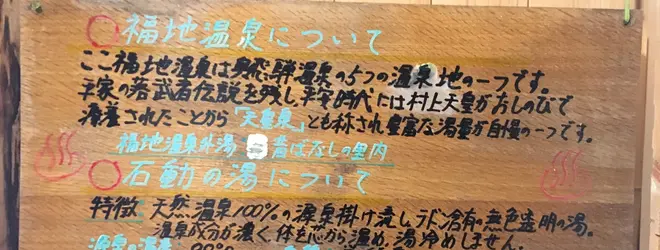 ○福地温泉について
ここ福地温泉は奥飛騨温泉の5つの温泉地の一つです。
平家の落武者伝説を残し、平安時代には村上天皇がおしのびで
湯養されたことから「天皇泉」とも称され豊富な湯量が自慢の一つです。
福地温泉外湯 昔ばなしの里内
○石動の湯について
特徴: 天然温泉100%の源泉掛け流し ラドン含有の無色透明の湯。
温泉成分が濃く、体を芯から温め、湯冷めしません。
源泉の温度